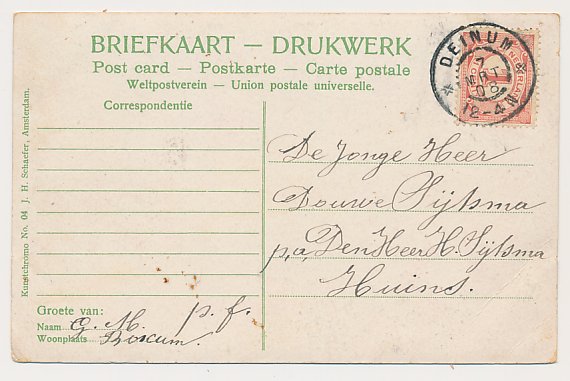 BRIEFKAART — DRUKWERK
Post card — Postkarte — Carte postale
Weltpostverein — Union postale universelle.
Correspondentie
DEINUM
7
MRT
08
12-4N
NEDERLAND
1
De Jonge Heer
Douwe Sijtsma
p,a, Den Heer H. Sijtsma
Huins.
Groete van:
p. f.
Naam G. M.
Woonplaats Boxum
Kunstchromo No. 04 J. H. Schaefer, Amsterdam.